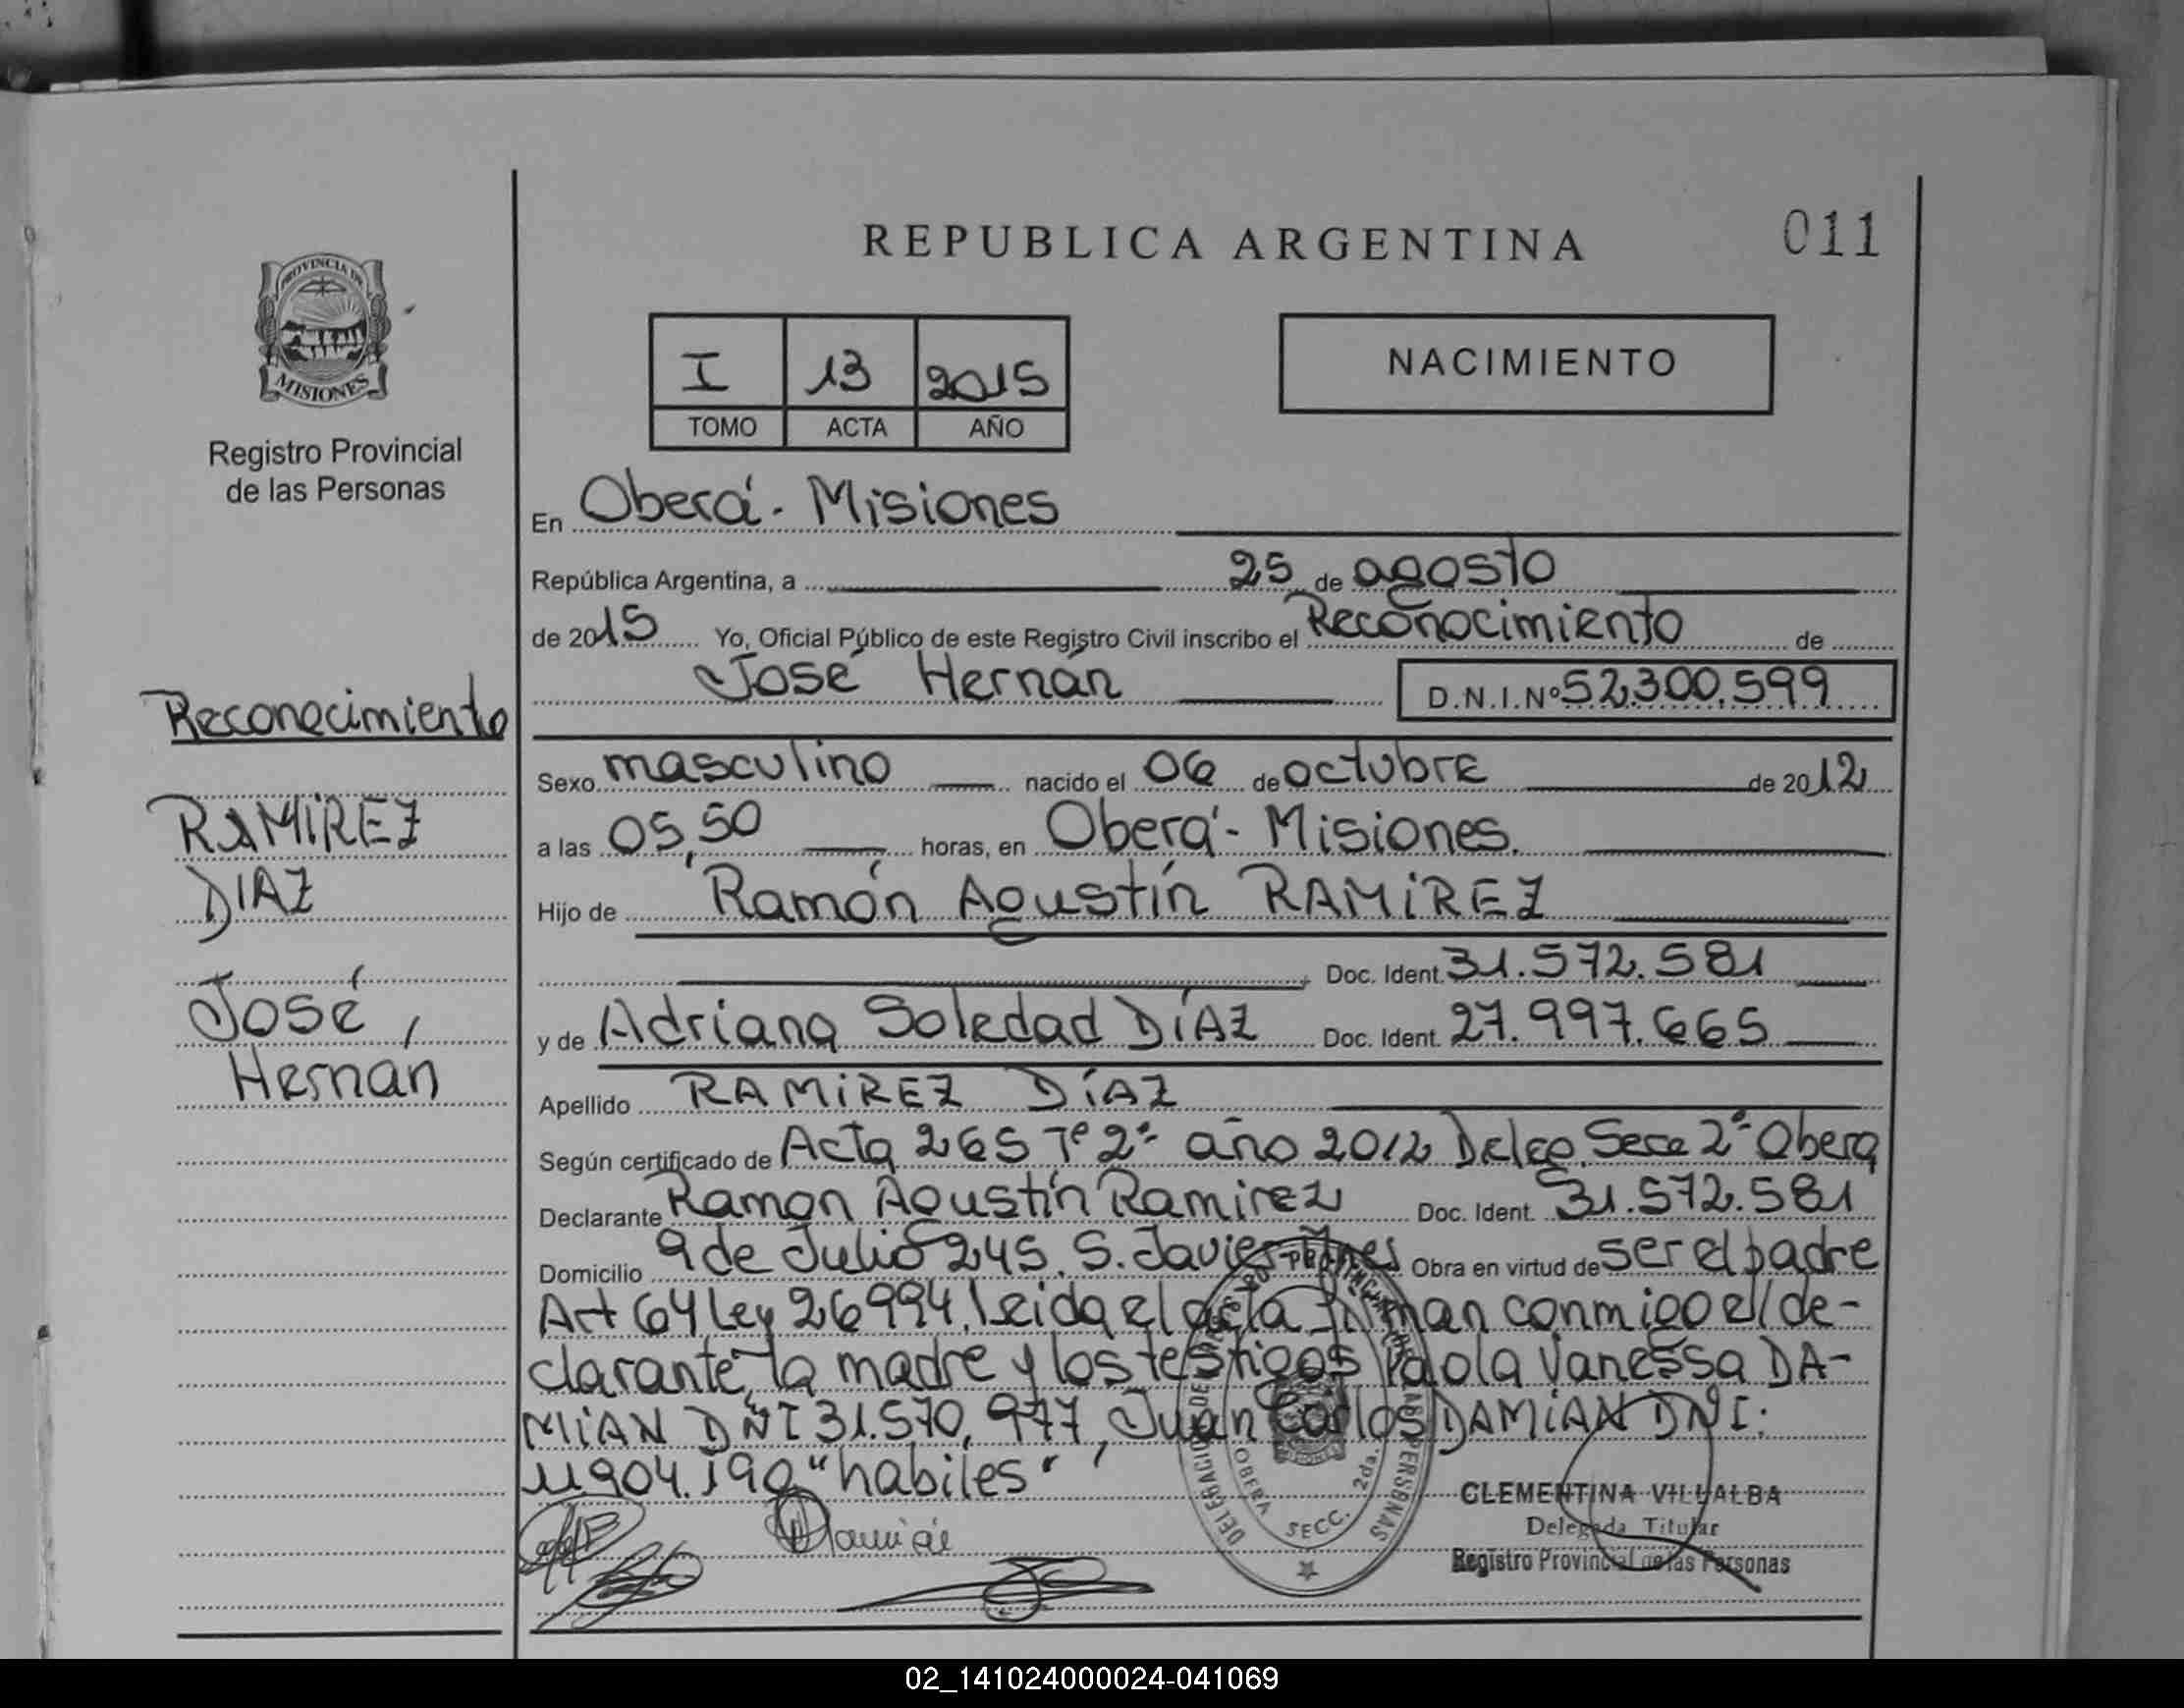 REPUBLICA ARGENTINA
011
PROVINCIA DE
MISIONES
Registro Provincial
de las Personas
I 13 2015
TOMO ACTA AÑO
NACIMIENTO
Reconocimiento
RAMIREZ
DIAZ
José
Hernán
En Oberá - Misiones
República Argentina, a 25 de agosto
de 2015 Yo, Oficial Público de este Registro Civil inscribo el Reconocimiento de
José Hernán D.N.I.Nº 52.300.599
Sexo masculino nacido el 06 de octubre de 2012
a las 05,50 horas, en Oberá - Misiones.
Hijo de Ramón Agustín RAMIREZ
Doc. Ident. 31.572.581
y de Adriana Soledad DÍAZ Doc. Ident. 27.997.665
Apellido RAMIREZ DÍAZ
Según certificado de Acta 265 Tº 2º año 2012 Deleg. Secc 2º Obera
Declarante Ramon Agustín Ramirez Doc. Ident. 31.572.581
Domicilio 9 de Julio 245. S. Javier Mnes Obra en virtud de ser el padre
Art 64 Ley 26994. Leida el acta firman conmigo el de-
clarante, la madre y los testigos Paola Vanessa DA-
MIAN DNI 31.570.977, Juan Carlos DAMIAN DNI:
11904.190 "habiles"
Damian
OBERA SECC. 2da.
CLEMENTINA VILLALBA
Delegada Titular
Registro Provincial de las Personas
02_141024000024-041069